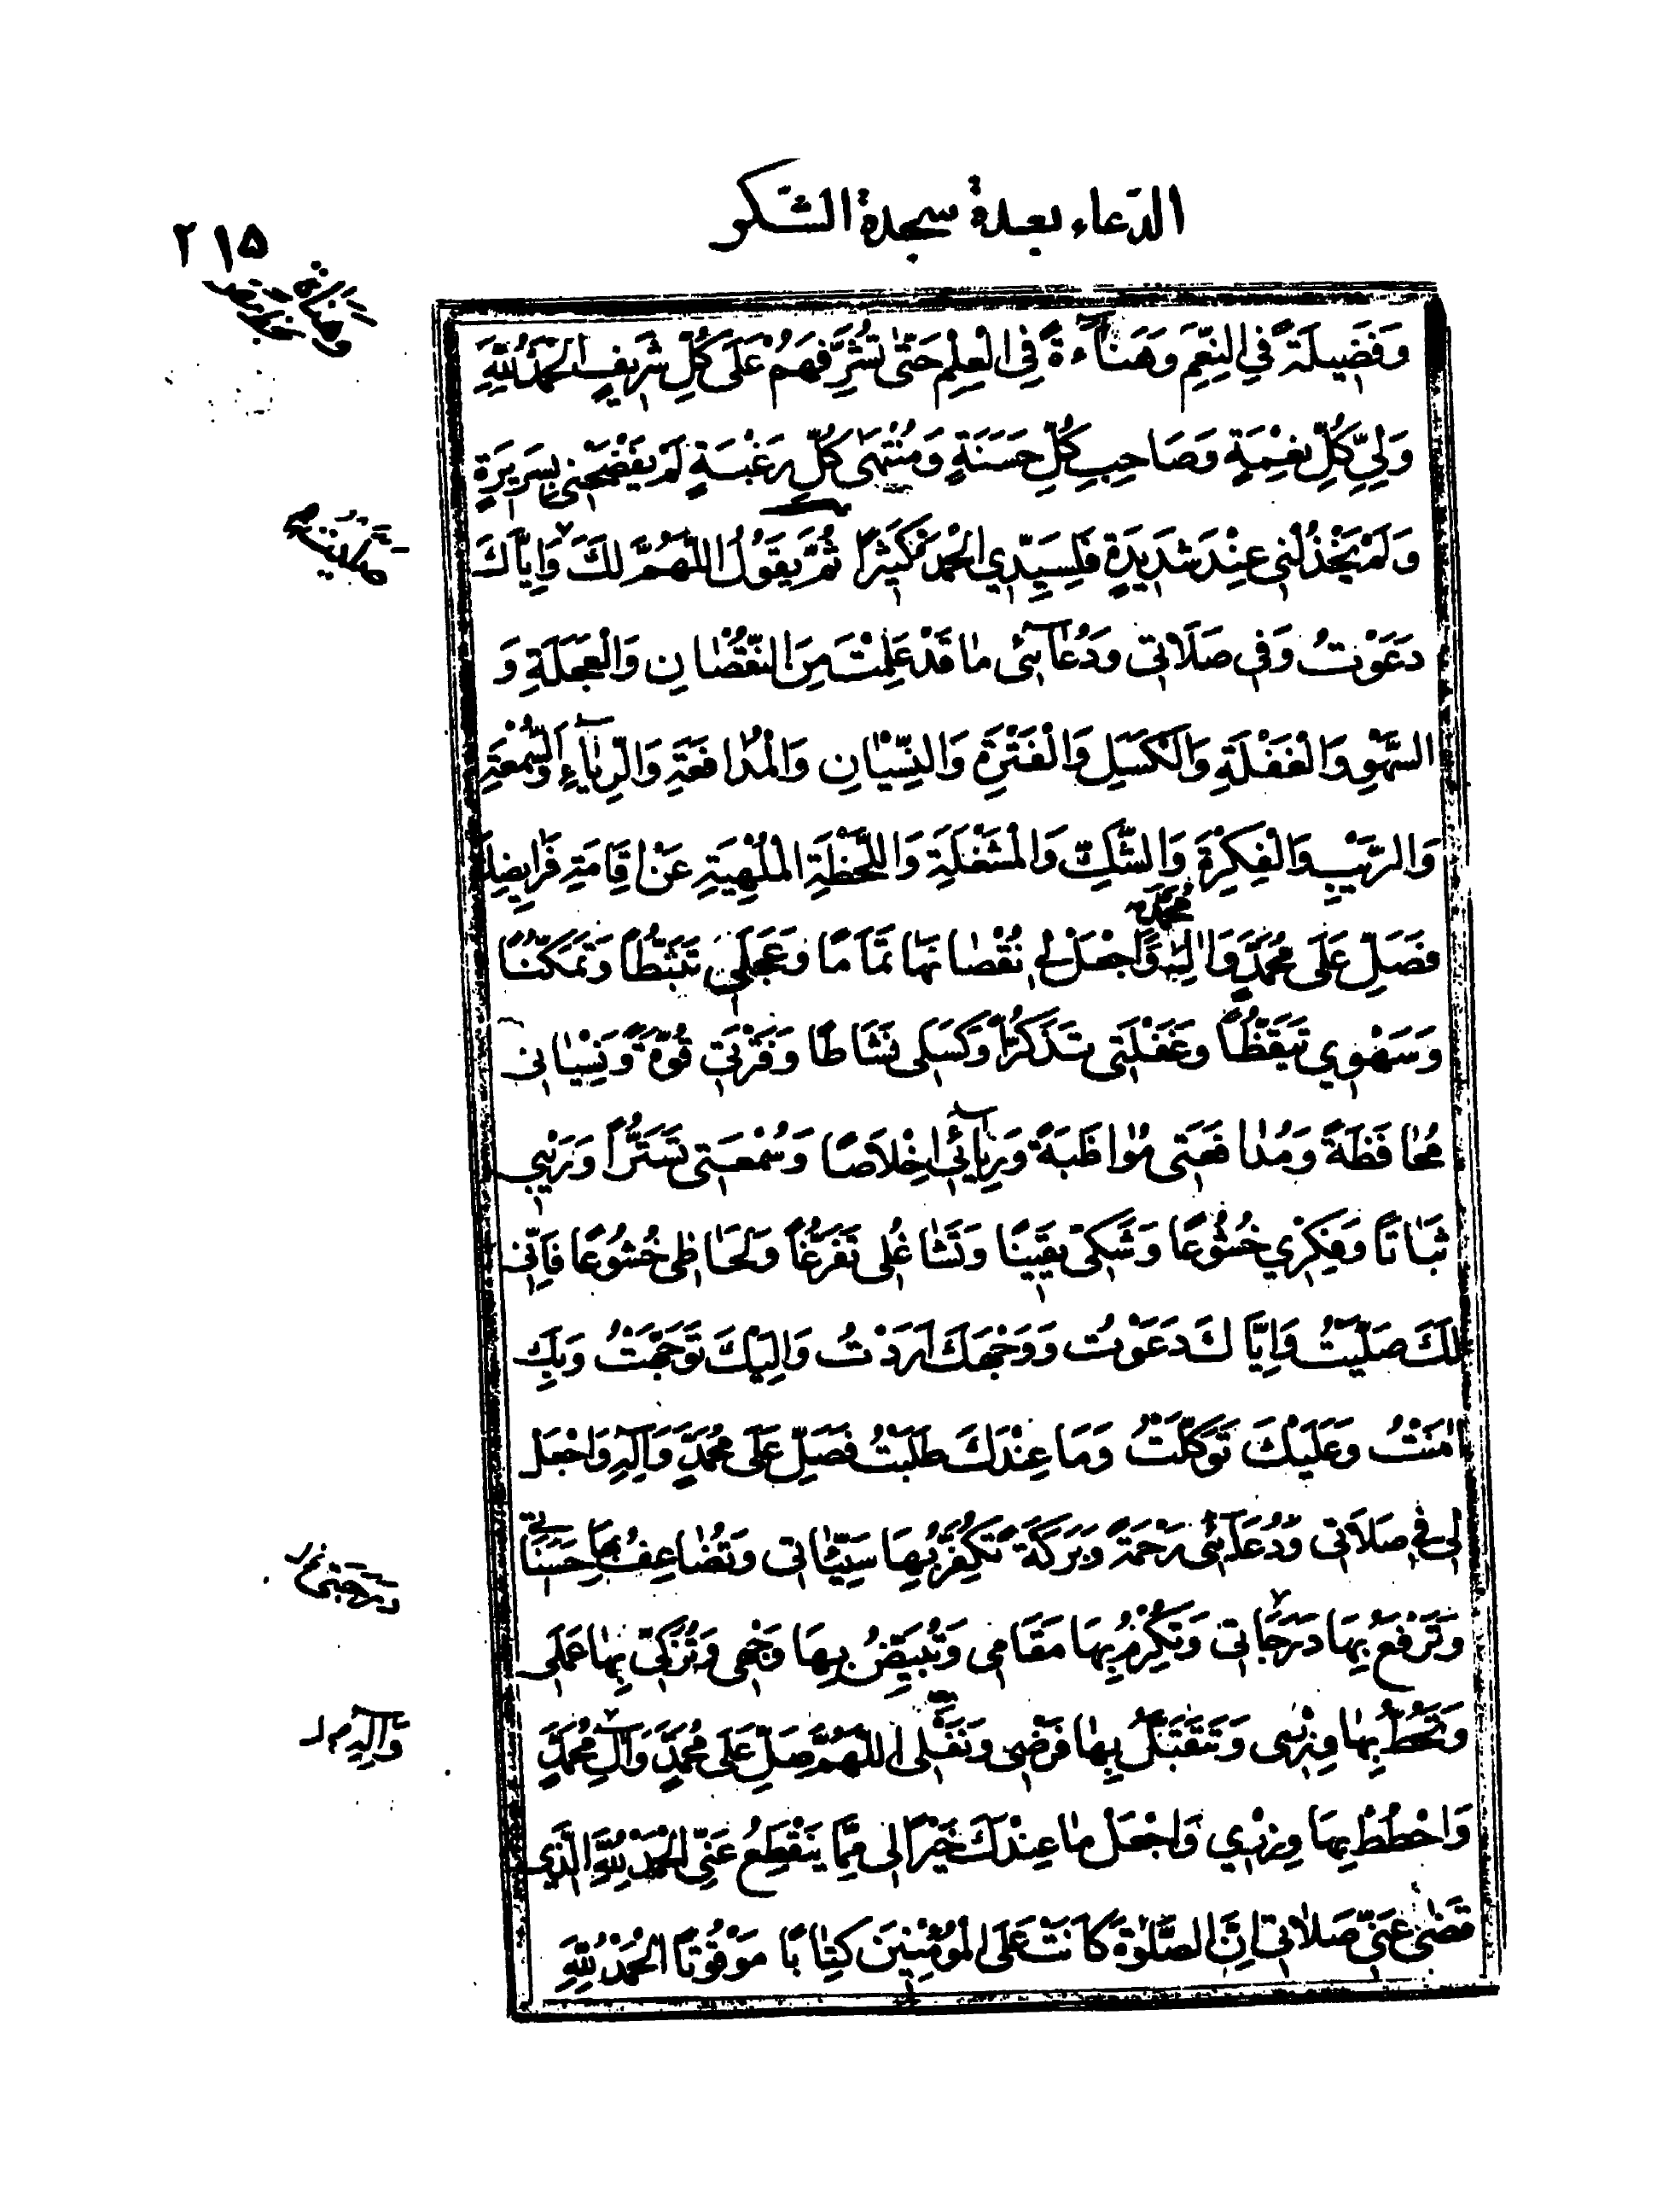 الدّعاء بعدة سجدة الشّكر
٢١۵
وَفَضِيلَةً فِي النِّعَمِ وَهَنآءَةً فِي الْعِلْمِ حَتّىٰ تُشَرِّفَهُمْ عَلَىٰ كُلِّ شَرِيفٍ الْحَمْدُ لِلّٰهِ
وَلِيِّ كُلِّ نِعْمَةٍ وَصَاحِبِ كُلِّ حَسَنَةٍ وَمُنْتَهىٰ كُلِّ رَغْبَةٍ لَمْ يَفْضَحْنِي بِسَرِيرَةٍ
وَلَمْ يَخْذُلْنِي عِنْدَ شَدِيدَةٍ فَلِسَيِّدِي الْحَمْدُ كَثِيرًا ثُمَّ يَقُولُ اللّٰهُمَّ لَكَ وَاِيّاكَ
دَعَوْتُ وَفِي صَلَاتِي وَدُعآئِي مٰا قَدْ عَلِمْتَ مِنَ النُّقْصٰانِ وَالْعَجَلَةِ وَ
السَّهْوِ وَالْغَفْلَةِ وَالْكَسَلِ وَالْفَتْرَةِ وَالنِّسْيٰانِ وَالْمُدٰافَعَةِ وَالرِّيٰآءِ وَالسُّمْعَةِ
وَالرَّيْبِ وَالْفِكْرَةِ وَالشَّكِّ وَالْمَشْغَلَةِ وَاللَّحْظَةِ الْمُلْهِيَةِ عَنْ اِقَامَةِ فَرَايِضِكَ
فَصَلِّ عَلَىٰ مُحَمَّدٍ وَاٰلِهِ وَاجْعَلْ لِي نُقْصَانَهَا تَمَامًا وَعَجَلَتِي تَثَبُّطاً وَتَمَكُّنًا
مُحَمَّدٍ
وَسَهْوِي تَيَقُّظًا وَغَفْلَتِي تَذَكُّرًا وَكَسَلِي نَشَاطًا وَفَتْرَتِي قُوَّةً وَنِسْيٰانِي
مُحٰافَظَةً وَمُدٰافَعَتِي مُوٰاظَبَةً وَرِيٰآئِي اِخْلَاصًا وَسُمْعَتِي تَسَتُّرًا وَرَيْبِي
ثَبَاتًا وَفِكْرِي خُشُوعًا وَشَكِّي يَقِينًا وَتَشٰاغُلِي تَفَرُّغًا وَلِحَاظِي خُشُوعًا فَاِنِّي
لَكَ صَلَّيْتُ وَاِيّاكَ دَعَوْتُ وَوَجْهَكَ اَرَدْتُ وَاِلَيْكَ تَوَجَّهْتُ وَبِكَ
اٰمَنْتُ وَعَلَيْكَ تَوَكَّلْتُ وَمَا عِنْدَكَ طَلَبْتُ فَصَلِّ عَلَىٰ مُحَمَّدٍ وَآلِهِ وَاجْعَلْ
لِي فِي صَلَاتِي وَدُعَآئِي رَحْمَةً وَبَرَكَةً تُكَفِّرُ بِهَا سَيِّئٰاتِي وَتُضٰاعِفُ بِهَا حَسَنَاتِي
وَتَرْفَعُ بِهَا دَرَجَاتِي وَتُكْرِمُ بِهَا مَقَامِي وَتُبَيِّضُ بِهَا وَجْهِي وَتُزَكِّي بِهٰا عَمَلِي
وَتَحُطُّ بِهٰا وِزْرِي وَتَقَبَّلُ بِهٰا فَرْضِي وَنَفْلِي اللّٰهُمَّ صَلِّ عَلَىٰ مُحَمَّدٍ وَآلِ مُحَمَّدٍ
وَاحْطُطْ بِهَا وِزْرِي وَاجْعَلْ مٰا عِنْدَكَ خَيْرًا لِي مِمّا يَنْقَطِعُ عَنِّي الْحَمْدُ لِلّٰهِ الَّذِي
قَضٰى عَنِّي صَلٰاتِي اِنَّ الصَّلوٰةَ كَانَتْ عَلَى الْمُؤْمِنِينَ كِتٰابًا مَوْقُوتًا الْحَمْدُ لِلّٰهِ
دَرَجَتِي
وَآلِهِ